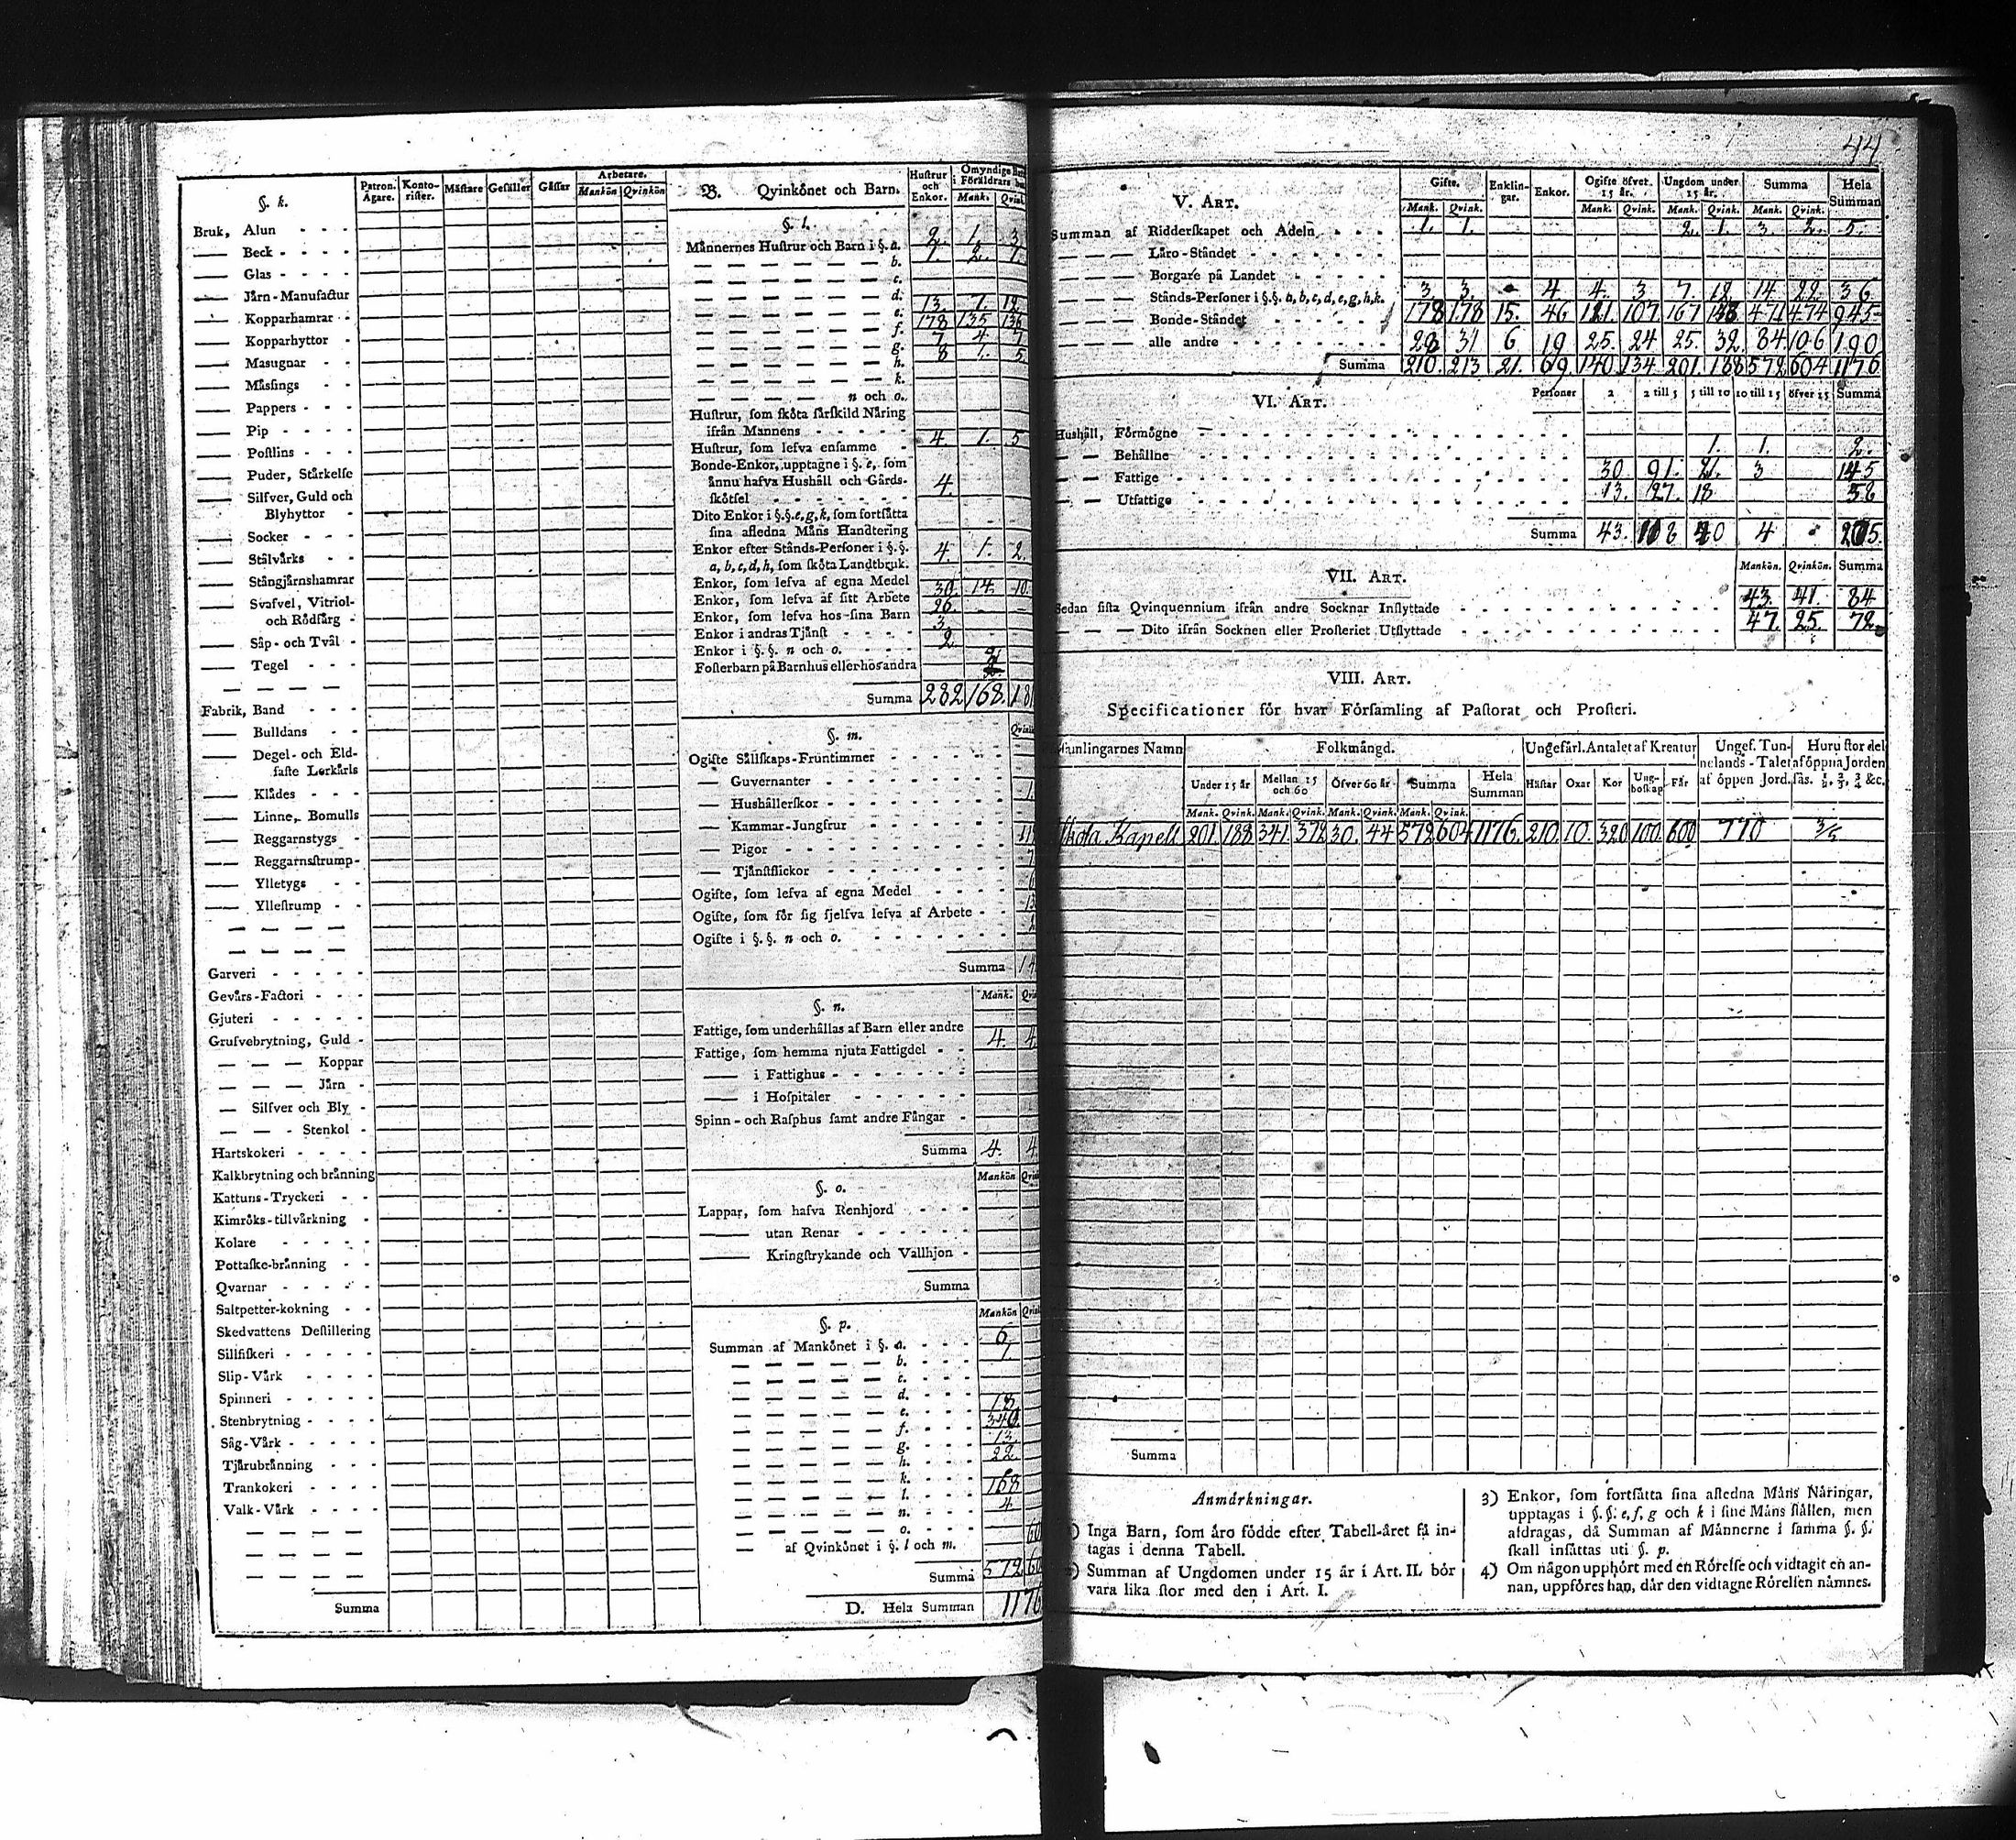 44
§. k.
Patron. Ågare.
Konto-rister.
Måstare
Gesåller
Gåsser
Arbetare.
Mankön Qvinkön
Bruk, Alun
Beck
Glas
Jårn-Manufactur
Kopparhamrar
Kopparhyttor
Masugnar
Måsings
Pappers
Pip
Postlins
Puder, Stårkelse
Silfver, Guld och
Blyhyttor
Socker
Stålvårks
Stångjårnshamrar
Svafvel, Vitriol-
och Rödfårg
Såp- och Tvål
Tegel
Fabrik, Band
Bulldans
Degel- och Eld-
faste Lerkårls
Klådes
Linne, Bomulls
Reggarnstygs
Reggarnsstrump
Ylletygs
Yllestrump
Garveri
Gevårs-Factori
Gjuteri
Grufvebrytning, Guld
Koppar
Jårn
Silfver och Bly
Stenkol
Hartskokeri
Kalkbrytning och brånning
Kattuns-Tryckeri
Kimröks-tillvårkning
Kolare
Pottaske-brånning
Qvarnar
Saltpetter-kokning
Skedvattens Destillering
Sillfiskeri
Slip-Vårk
Spinneri
Stenbrytning
Såg-Vårk
Tjårubrånning
Trankokeri
Valk-Vårk
Summa
B. Qvinkönet och Barn.
Hustrur och Enkor.
Omyndige
i Föråldrars
Mank. Qvink.
§. l.
Månnernes Hustrur och Barn i §. a. 2. 1. 3
b. 1. 2. 1
c.
d. 13 7. 12
e. 178 135 136
f. 7 4. 7
g. 8 1. 5
h.
k.
n och o.
Hustrur, som sköta sårskild Nåring
ifrån Mannens
Hustrur, som lefva ensamme 4. 1. 5
Bonde-Enkor, upptagne i §. e, som
ånnu hafva Hushåll och Gårds-
skötsel 4.
Dito Enkor i §.§. e, g, k, som fortsåtta
sina afledna Måns Handtering
Enkor efter Stånds-Personer i §.§.
a, b, c, d, h, som sköta Landtbruk. 4. 1. 2.
Enkor, som lefva af egna Medel
Enkor, som lefva af sitt Arbete 30. 14. 10.
Enkor, som lefva hos sina Barn 26.
Enkor i andras Tjånst 3.
Enkor i §.§. n och o. 2
Fosterbarn på Barnhus eller hos andra
Summa 282 168. 18
§. m.
Ogifte Sållskaps-Fruntimmer
Guvernanter
Hushållerskor
Kammar-Jungfrur
Pigor
Tjånstflickor
Ogifte, som lefva af egna Medel
Ogifte, som för sig sjelfva lefva af Arbete
Ogifte i §.§. n och o.
Summa
§. n.
Mank.
Fattige, som underhållas af Barn eller andre 4. 4
Fattige, som hemma njuta Fattigdel
i Fattighus
i Hospitaler
Spinn- och Rasphus samt andre Fångar
Summa 4. 4
§. o.
Mankön
Lappar, som hafva Renhjord
utan Renar
Kringstrykande och Vallhjon
Summa
§. p.
Mankön
Summan af Mankönet i §. a. 6
b. 1.
c.
d. 18
e. 340.
f. 13.
g. 22
h.
k.
l. 168
n. 4
o.
af Qvinkönet i §. l och m. 60
Summa 572 60
D. Hela Summan 1176
V. ART.
Gifte.
Mank. Qvink.
Enklin-gar.
Enkor.
Ogifte öfver 15 år.
Mank. Qvink.
Ungdom under 15 år.
Mank. Qvink.
Summa
Mank. Qvink.
Hela Summan
Summan af Ridderskapet och Adeln 1. 1. 2. 1. 3 2. 5.
Låro-Ståndet
Borgare på Landet
Stånds-Personer i §.§. a, b, c, d, e, g, h, k. 3 3 4 4. 3 7. 12 14 22 36
Bonde-Ståndet 178 178 15. 46 111. 107 167 143 471 474 945
alle andre 28 31 6 19 25. 24 25. 32. 84 106 190
Summa 210. 213 21. 69. 140 134 201. 188 572 604 1176
VI. ART.
Personer 2 2 till 5 5 till 10 10 till 15 öfver 15 Summa
Hushåll, Förmögne
Behållne 1. 1. 2.
Fattige 30. 91. 21. 3 145
Utfattige 13. 27. 18 58
Summa 43. 118 40 4 205.
VII. ART.
Mankön. Qvinkön. Summa
Sedan sista Qvinquennium ifrån andre Socknar Inflyttade 43. 41. 84
Dito ifrån Socknen eller Prosteriet Utflyttade 47. 25. 72.
VIII. ART.
Specificationer för hvar Församling af Pastorat och Prosteri.
Namn
Folkmångd.
Ungefårl. Antalet af Kreatur
Ungef. Tun-nelands-Talet af öppen Jord.
Huru stor del af öppna Jorden sås. ½, ⅔, ¾ &c.
Under 15 år
Mellan 15 och 60
Öfver 60 år
Summa
Hela Summan
Håstar
Oxar
Kor
Ung-boskap
Får
Mank. Qvink. Mank. Qvink. Mank. Qvink. Mank. Qvink.
Kapell 201. 188 341. 372 30. 44 572 604 1176. 210. 10. 320 100. 600 770 3/5
Summa
Anmårkningar.
Inga Barn, som åro födde efter Tabell-året få in-
tagas i denna Tabell.
Summan af Ungdomen under 15 år i Art. II. bör
vara lika stor med den i Art. I.
3) Enkor, som fortsåtta sina afledna Måns Nåringar,
upptagas i §. §. e, f, g och k i sine Måns stållen, men
afdragas, då Summan af Månnerne i samma §. §.
skall insåttas uti §. p.
4) Om någon upphört med en Rörelse och vidtagit en an-
nan, uppföres han, dår den vidtagne Rörelsen nåmnes.